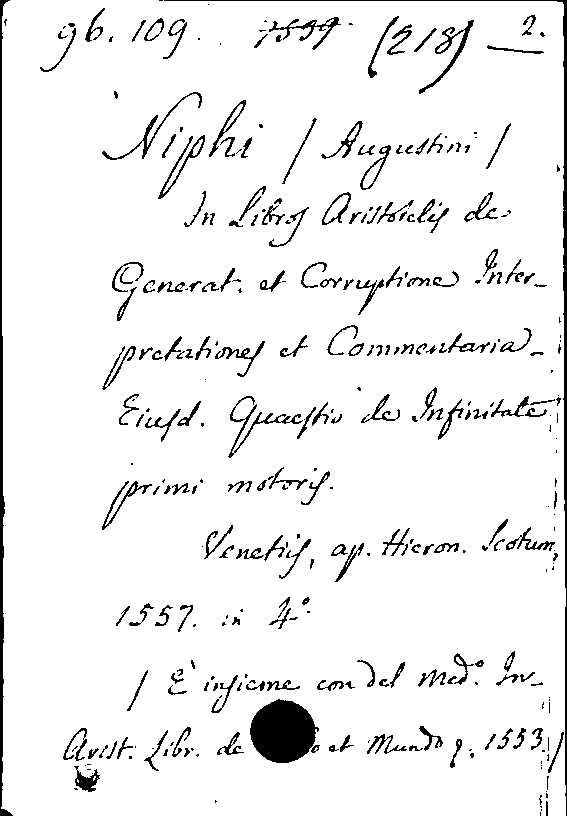 96. 109. (218) 2.
Niphi / Augustini /
In Libros Aristotelis de
Generat. et Corruptione Inter-
pretationes et Commentaria-
Eiusd. Quaestio de Infinitate
primi motoris.
Venetiis, ap. Hieron. Scotum,
1557. in 4.°
/ E' insieme con del med.° In-
Arist. Libr. de et Mundo 1553. /